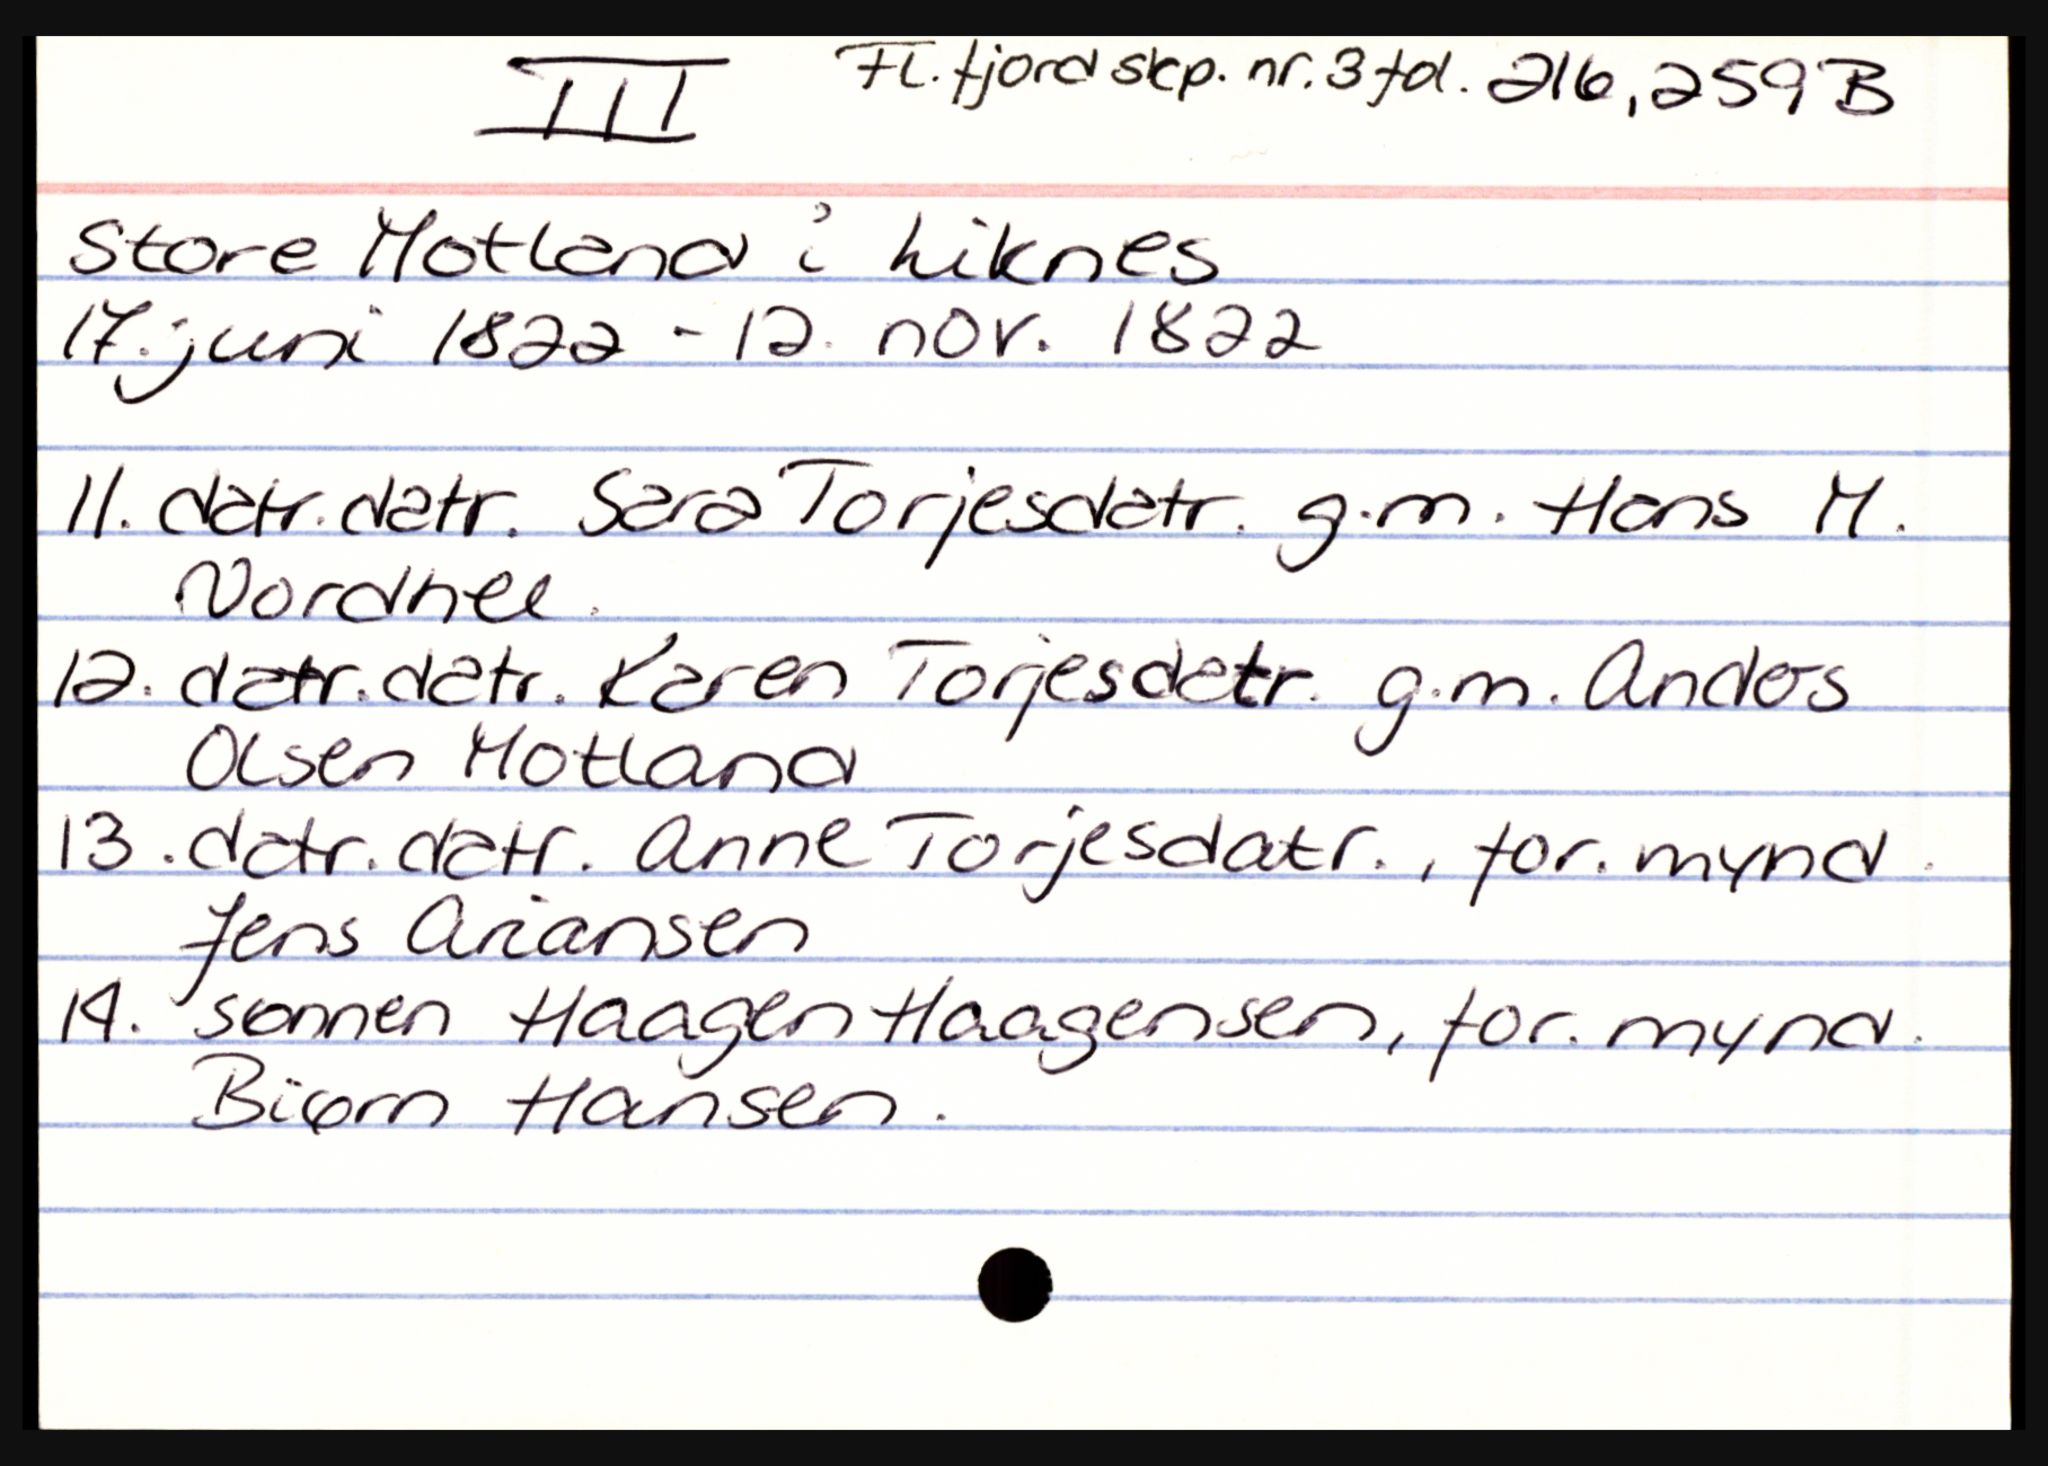 III Fl.fjord skp. nr. 3 fol. 216, 259B
Store Motland i Liknes
17. juni 1822 - 12. nov. 1822
11. datr.datr. Sara Torjesdatr. g.m. Hans M.
Nordhel.
12. datr.datr. Karen Torjesdatr. g.m. Anders
Olsen Motland
13. datr.datr. Anne Torjesdatr., for. mynd.
Jens Ariansen
14. sønnen Haagen Haagensen, for. mynd.
Biørn Hansen.